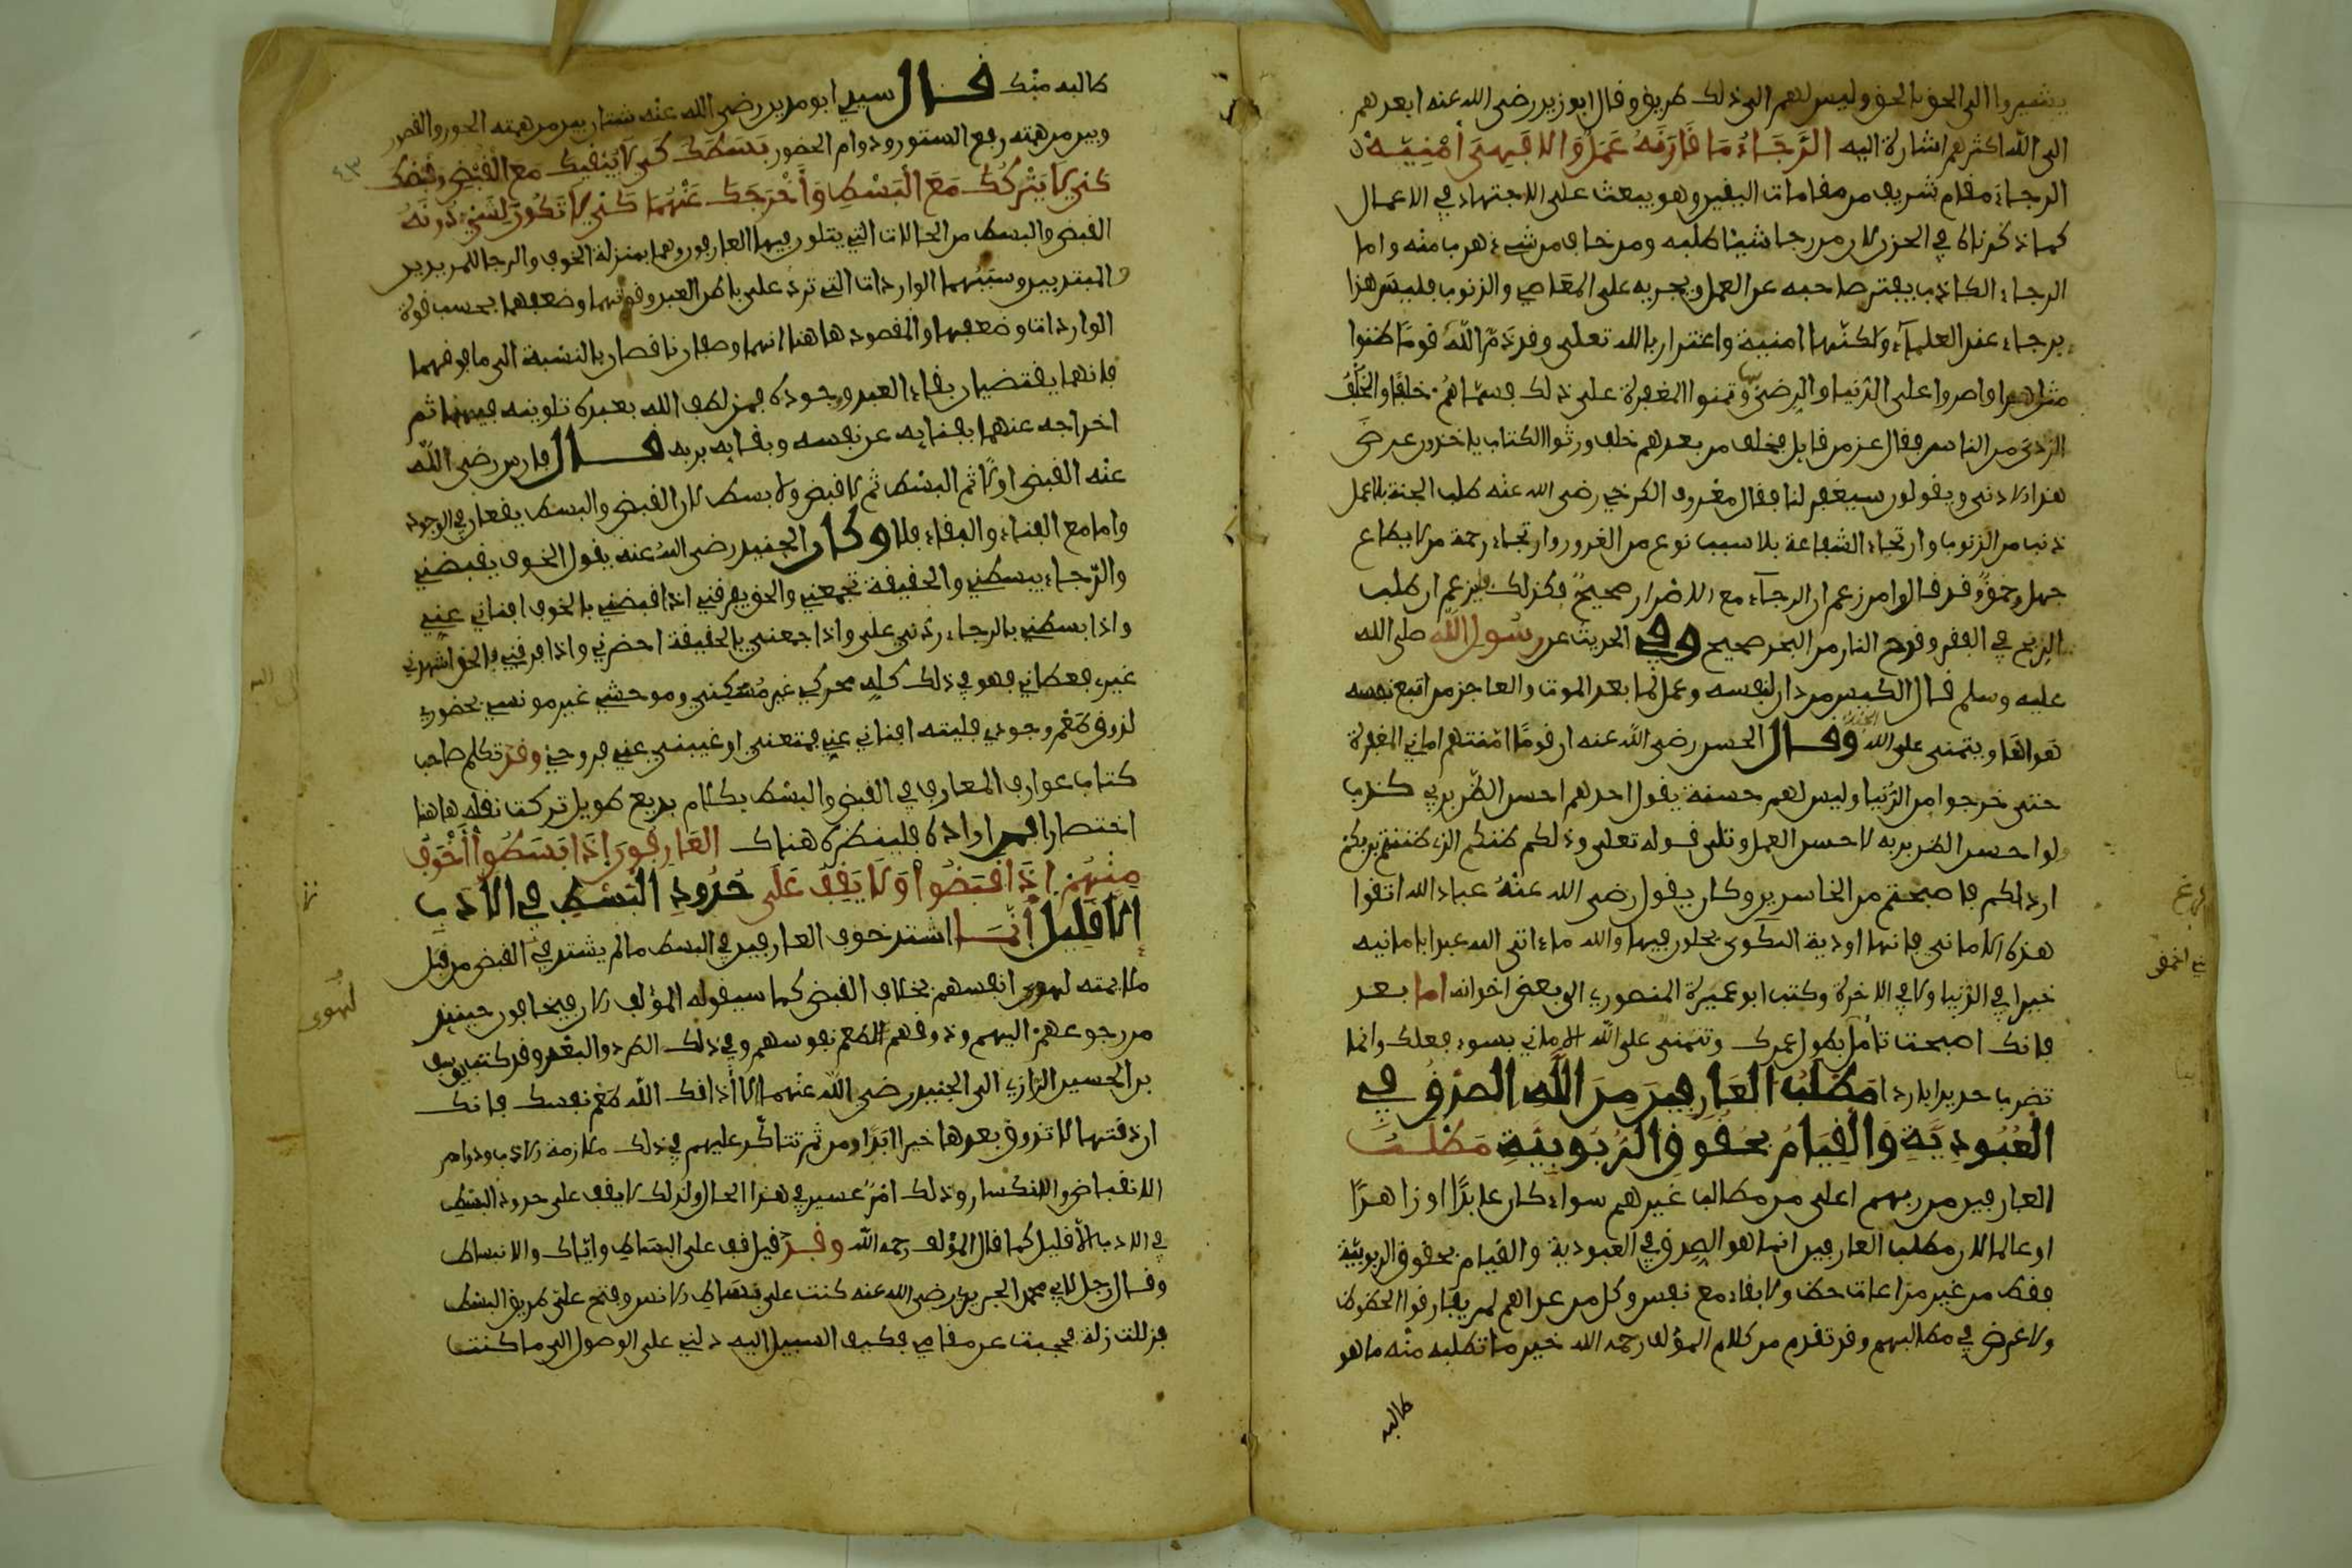 يشيروا الى الحق بالحق وليس لهم الى ذلك طريق وقال ابو زيد رضى الله عنه ابعدهم
الى الله اكثرهم اشارة اليه الرَّجَاءُ مَا قَارَنَهُ عَمَلٌ وَالا فَهِىَ أُمْنِيَّةٌ
الرجاء مقام شريف من مقامات اليقين وهو يبعث على الاجتهاد في الاعمال
كما ذكرناه في الحزن لان من رجا شيئا طلبه ومن خاف من شىء هرب منه واما
الرجاء الكاذب يفتر صاحبه عن العمل ويجريه على المعاصي والذنوب فليس هذا
برجاء عند العلماء ولكنها امنية واغترار بالله تعلى وقد ذمّ الله قوما ظنوا
مثل هذا واصروا على الدنيا والرضى بها وتمنوا المغفرة على ذلك فسمّاهم خلفًا والخلْف
الردى من الناس فقال عز من قايل فخلف من بعدهم خلف ورثوا الكتاب ياخذون عرض
هذا الادنى ويقولون سيغفر لنا فقال معروف الكرخي رضى الله عنه طلب الجنة بلا عمل
ذنب من الذنوب وارتجاء الشفاعة بلا سبب نوع من الغرور وارتجاء رحمة من لا يطاع
جهل وحمق وقد قالوا من زعم ان الرجاء مع الاصرار صحيح فكذلك فليزعم ان طلب
الربح في الفقر وقدح النار من البحر صحيح وفي الحديث عن رسول الله صلى الله
عليه وسلم قال الكيس من دان نفسه وعمل لما بعد الموت والعاجز من اتبع نفسه
هواها ويتمنى على الله الجنة وقال الحسن رضى الله عنه ان قوما الهتهم اماني المغفرة
حتى خرجوا من الدنيا وليس لهم حسنة يقول احدهم احسن الظن بربي كذب
ولو احسن الظن بربه لاحسن العمل وتلى قوله تعلى وذلكم ظنكم الذى ظننتم بربكم
ارداكم فاصبحتم من الخاسرين وكان يقول رضى الله عنه عباد الله اتقوا
هذه الاماني فانها اودية النوكى يحلون فيها والله ما ءاتى الله عبدا بامانيه
خيرا في الدنيا ولا في الاخرة وكتب ابو عميرة المنصوري الى بعض اخوانه اما بعد
فانك اصبحت تامل بطول عمرك وتتمنى على الله الاماني بسوء فعلك وانما
تضرب حديدا باردا مَطْلَبُ العَارِفِينَ مِنَ اللهِ الصِّدْقُ في
العُبُودِيَّةِ وَالْقِيَامُ بِحُقُوقِ الرُّبُوبِيَّةِ مَطْلَبُ
العارفين من ربهم اعلى من مطالب غيرهم سواء كان عابدًا او زاهدًا
او عالما لان مطلب العارفين انما هو الصدق في العبودية والقيام بحقوق الربوبيّة
فقط من غير مراعات حظ ولا بقاء مع نفس وكل من عداهم لم يفارقوا الحظوظ
ولا غرض في مطالبهم وقد تقدم من كلام المؤلف رحمه الله خير ما تطلبه منه ما هو
طالبه
طالبه منك قال سيدي ابو مدين رضى الله عنه شتان بين من همته الحور والقصور
وبين من همته رفع الستور ودوام الحضور بَسَطَكَ كَىْ لَا يُبْقِيكَ مَعَ الْقَبْضِ وَقَبَضَكَ
كَىْ لَا يَتْرُكَكَ مَعَ الْبَسْطِ وَأَخْرَجَكَ عَنْهُمَا كَىْ لَا تَكُونَ لِشَىْءٍ دُونَهُ
القبض والبسط من الحالات التي يتلون فيها العارفون وهما بمنزلة الخوف والرجا للمريدين
المبتديين وسببهما الواردات التي ترد على باطن العبد وقوتهما وضعفهما بحسب قوة
الواردات وضعفها والمقصود هاهنا انهما وصفان ناقصان بالنسبة الى ما فوقهما
فانهما يقتضيان بقاء العبد ووجوده فمن لطف الله بعبده تلوينه فيهما ثم
اخراجه عنهما بفنايه عن نفسه وبقايه بربه قال فارس رضى الله
عنه القبض اولًا ثم البسْط ثم لا قبض ولا بسط لان القبض والبسط يقعان في الوجود
واما مع الفناء والبقاء فلا وكان الجنيد رضى الله عنه يقول الخوف يقبضني
والرّجاء يبسطني والحقيقة تجمعني والحق يفرقني اذا قبضني بالخوف افناني عني
واذا بسطني بالرجاء ردني على واذا جمعني بالحقيقة احضرني واذا فرقني بالحق اشهدني
غيرى فغطاني فهو في ذلك كله محركي غير مُسَكِّنى وموحشي غير مونسي بحضوري
لذوق طعم وجودي فليته افناني عني فمتعني او غيبني عني فروحني وقد تكلم صاحب
كتاب عوارف المعارف في القبض والبسْط بكلام بديع طويل تركت نقله هاهنا
اختصارا فمن اراده فلينظره هناك العَارِفُونَ إِذَا بُسِطُوا أَخْوَفُ
مِنْهُمْ إِذَا قُبِضُوا وَلَا يَقِفُ عَلَى حُدُودِ الْبَسْطِ فِي الأَدَبِ
إِلَّا قَلِيلٌ إِنَّمَا اشتد خوف العارفين في البسط ما لم يشتد في القبض من قبل
ملايمته لهوى انفسهم بخلاف القبض كما سيقوله المؤلف لان فيخافون حينيذ
من رجوعهم اليهم وذوقهم لطعم نفوسهم وفي ذلك الطرد والبعْد وقد كتب يوسف
بن الحسين الرازي الى الجنيد رضى الله عنهما لا أذاقك الله طعم نفسك فانك
ان ذقتها لا تذوق بعدها خيرا ابدًا ومن ثم تتاكّد عليهم في ذلك ملازمة الادب ودوام
الانقباض والانكسار وذلك امر عسير في هذا الحال ولذلك لا يقف على حدود البسْط
في الادب الا قليل كما قال المؤلف رحمه الله وقد قيل قف على البساط واياك والانبساط
وقال رجل لابي محمد الجريرى رضى الله عنه كنت على بساط الانس وفتح على طريق البسْط
فزللت زلة فحجبت عن مقامي فكيف السبيل اليه دلني على الوصول الى ما كنت
لهوى